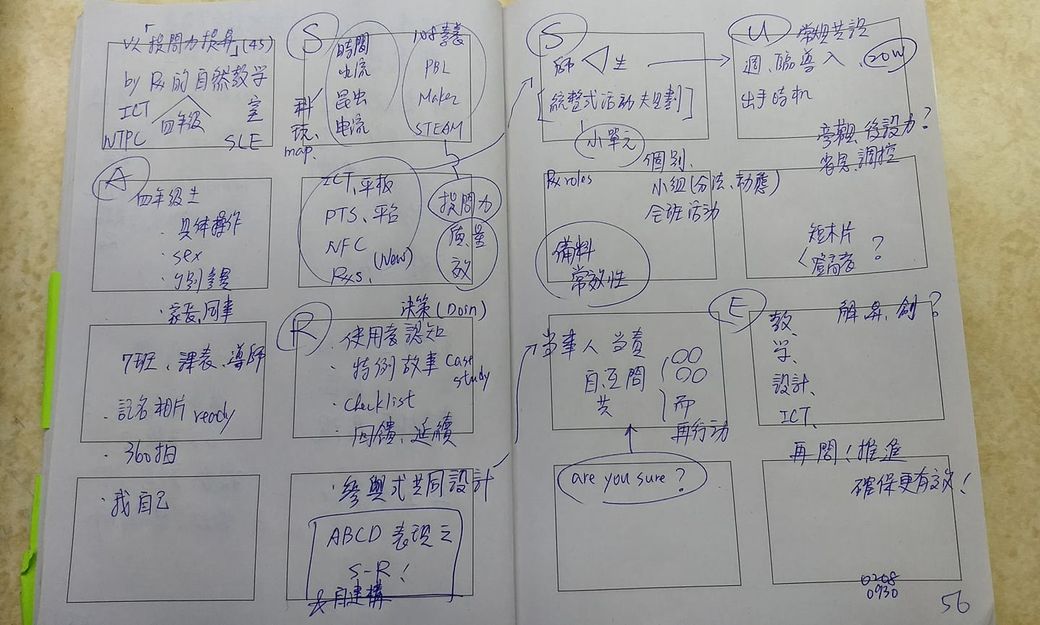 以提問力提昇(45)
by Rx的自然教学
ICT 室
四年級
NTPC SLE
A
四年級生
·具体操作
·sex
·家長、同事
7班、課表、導師
·記名相片 ready
·360拍
·我自己
S
時間
电流
昆虫
电流
科玩
map.
108
PBL
Maker
STEAM
ICT、平板
PTS、平台
NFC
Rxs. (New)
提問力
质量
效
决策(Doin)
R
·使用者認知
·特例故事 case study
·checklist
·回饋、延續
·參與式共同設計
ABCD 表現之
S-R!
&自建構
S
師 生
[統整式活動大企劃]
小單元
Rx roles
個別、
小組(分法、動態)
全班活動
備料
常效性
当事人 当責
自、互問
共
而
再行动
are you sure?
U
常規共识
週、臨導入、20W
出手時机
旁觀 後設力?
客思 調控
短木片
?
E
教、
学、
設計、
ICT、
解、昇、創?
再問!推進
確保更有效!
0208
0930
56